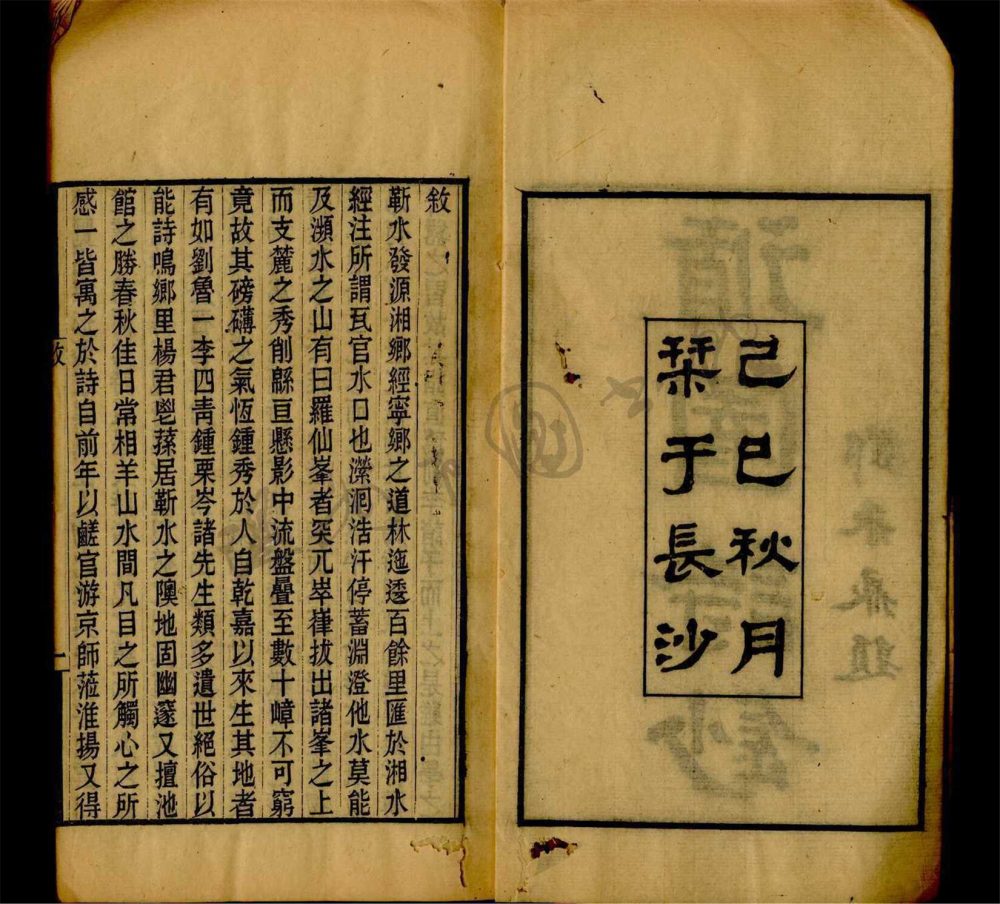 己巳秋月
栞于長沙
敘
靳水發源湘鄉經寧鄉之道林迤逶百餘里匯於湘水
經注所謂瓦官水口也瀠洄浩汗停蓄淵澄他水莫能
及瀕水之山有曰羅仙峯者突兀崒嵂拔出諸峯之上
而支麓之秀削緜亘懸影中流盤疊至數十嶂不可窮
竟故其磅礴之氣恆鍾秀於人自乾嘉以來生其地者
有如劉魯一李四青鍾栗岑諸先生類多遺世絕俗以
能詩鳴鄉里楊君鬯蓀居靳水之隩地固幽邃又擅池
館之勝春秋佳日常相羊山水間凡目之所觸心之所
感一皆寓之於詩自前年以鹺官游京師蒞淮揚又得
敘
一